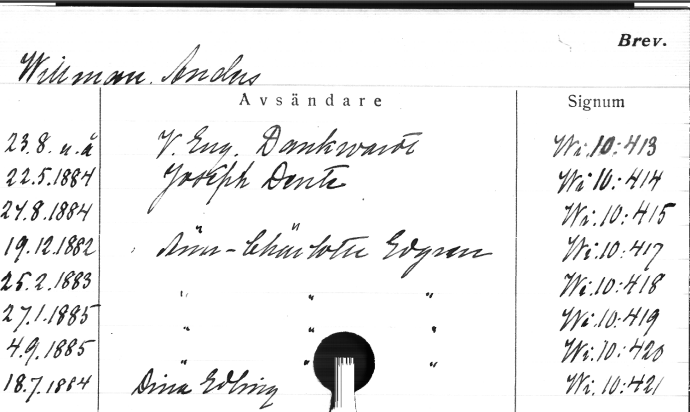 Brev.
Willman. Anders
Avsändare Signum
23.8. u.å V. Eug. Dankwardt Wi.10:413
22.5.1884 Joseph Dente Wi.10:414
24.8.1884 Wi.10:415
19.12.1882 Ann-Charlotte Edgren Wi.10:417
25.2.1883 " " " Wi.10:418
27.1.1885 " " " Wi.10:419
4.9.1885 " " " Wi.10:420
18.7.1884 Dina Edling Wi.10:421